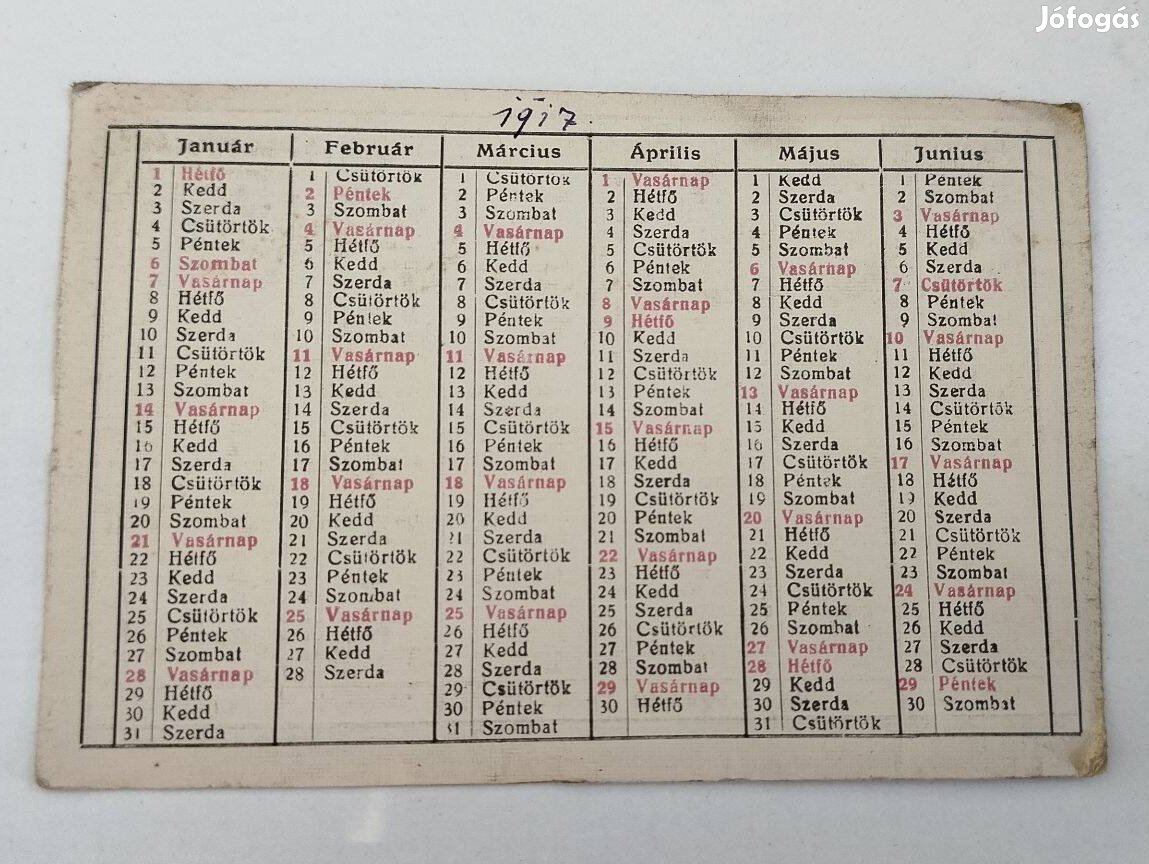 Jófogás
1917.
Január
1 Hétfő
2 Kedd
3 Szerda
4 Csütörtök
5 Péntek
6 Szombat
7 Vasárnap
8 Hétfő
9 Kedd
10 Szerda
11 Csütörtök
12 Péntek
13 Szombat
14 Vasárnap
15 Hétfő
16 Kedd
17 Szerda
18 Csütörtök
19 Péntek
20 Szombat
21 Vasárnap
22 Hétfő
23 Kedd
24 Szerda
25 Csütörtök
26 Péntek
27 Szombat
28 Vasárnap
29 Hétfő
30 Kedd
31 Szerda
Február
1 Csütörtök
2 Péntek
3 Szombat
4 Vasárnap
5 Hétfő
6 Kedd
7 Szerda
8 Csütörtök
9 Péntek
10 Szombat
11 Vasárnap
12 Hétfő
13 Kedd
14 Szerda
15 Csütörtök
16 Péntek
17 Szombat
18 Vasárnap
19 Hétfő
20 Kedd
21 Szerda
22 Csütörtök
23 Péntek
24 Szombat
25 Vasárnap
26 Hétfő
27 Kedd
28 Szerda
Március
1 Csütörtök
2 Péntek
3 Szombat
4 Vasárnap
5 Hétfő
6 Kedd
7 Szerda
8 Csütörtök
9 Péntek
10 Szombat
11 Vasárnap
12 Hétfő
13 Kedd
14 Szerda
15 Csütörtök
16 Péntek
17 Szombat
18 Vasárnap
19 Hétfő
20 Kedd
21 Szerda
22 Csütörtök
23 Péntek
24 Szombat
25 Vasárnap
26 Hétfő
27 Kedd
28 Szerda
29 Csütörtök
30 Péntek
31 Szombat
Április
1 Vasárnap
2 Hétfő
3 Kedd
4 Szerda
5 Csütörtök
6 Péntek
7 Szombat
8 Vasárnap
9 Hétfő
10 Kedd
11 Szerda
12 Csütörtök
13 Péntek
14 Szombat
15 Vasárnap
16 Hétfő
17 Kedd
18 Szerda
19 Csütörtök
20 Péntek
21 Szombat
22 Vasárnap
23 Hétfő
24 Kedd
25 Szerda
26 Csütörtök
27 Péntek
28 Szombat
29 Vasárnap
30 Hétfő
Május
1 Kedd
2 Szerda
3 Csütörtök
4 Péntek
5 Szombat
6 Vasárnap
7 Hétfő
8 Kedd
9 Szerda
10 Csütörtök
11 Péntek
12 Szombat
13 Vasárnap
14 Hétfő
15 Kedd
16 Szerda
17 Csütörtök
18 Péntek
19 Szombat
20 Vasárnap
21 Hétfő
22 Kedd
23 Szerda
24 Csütörtök
25 Péntek
26 Szombat
27 Vasárnap
28 Hétfő
29 Kedd
30 Szerda
31 Csütörtök
Junius
1 Péntek
2 Szombat
3 Vasárnap
4 Hétfő
5 Kedd
6 Szerda
7 Csütörtök
8 Péntek
9 Szombat
10 Vasárnap
11 Hétfő
12 Kedd
13 Szerda
14 Csütörtök
15 Péntek
16 Szombat
17 Vasárnap
18 Hétfő
19 Kedd
20 Szerda
21 Csütörtök
22 Péntek
23 Szombat
24 Vasárnap
25 Hétfő
26 Kedd
27 Szerda
28 Csütörtök
29 Péntek
30 Szombat